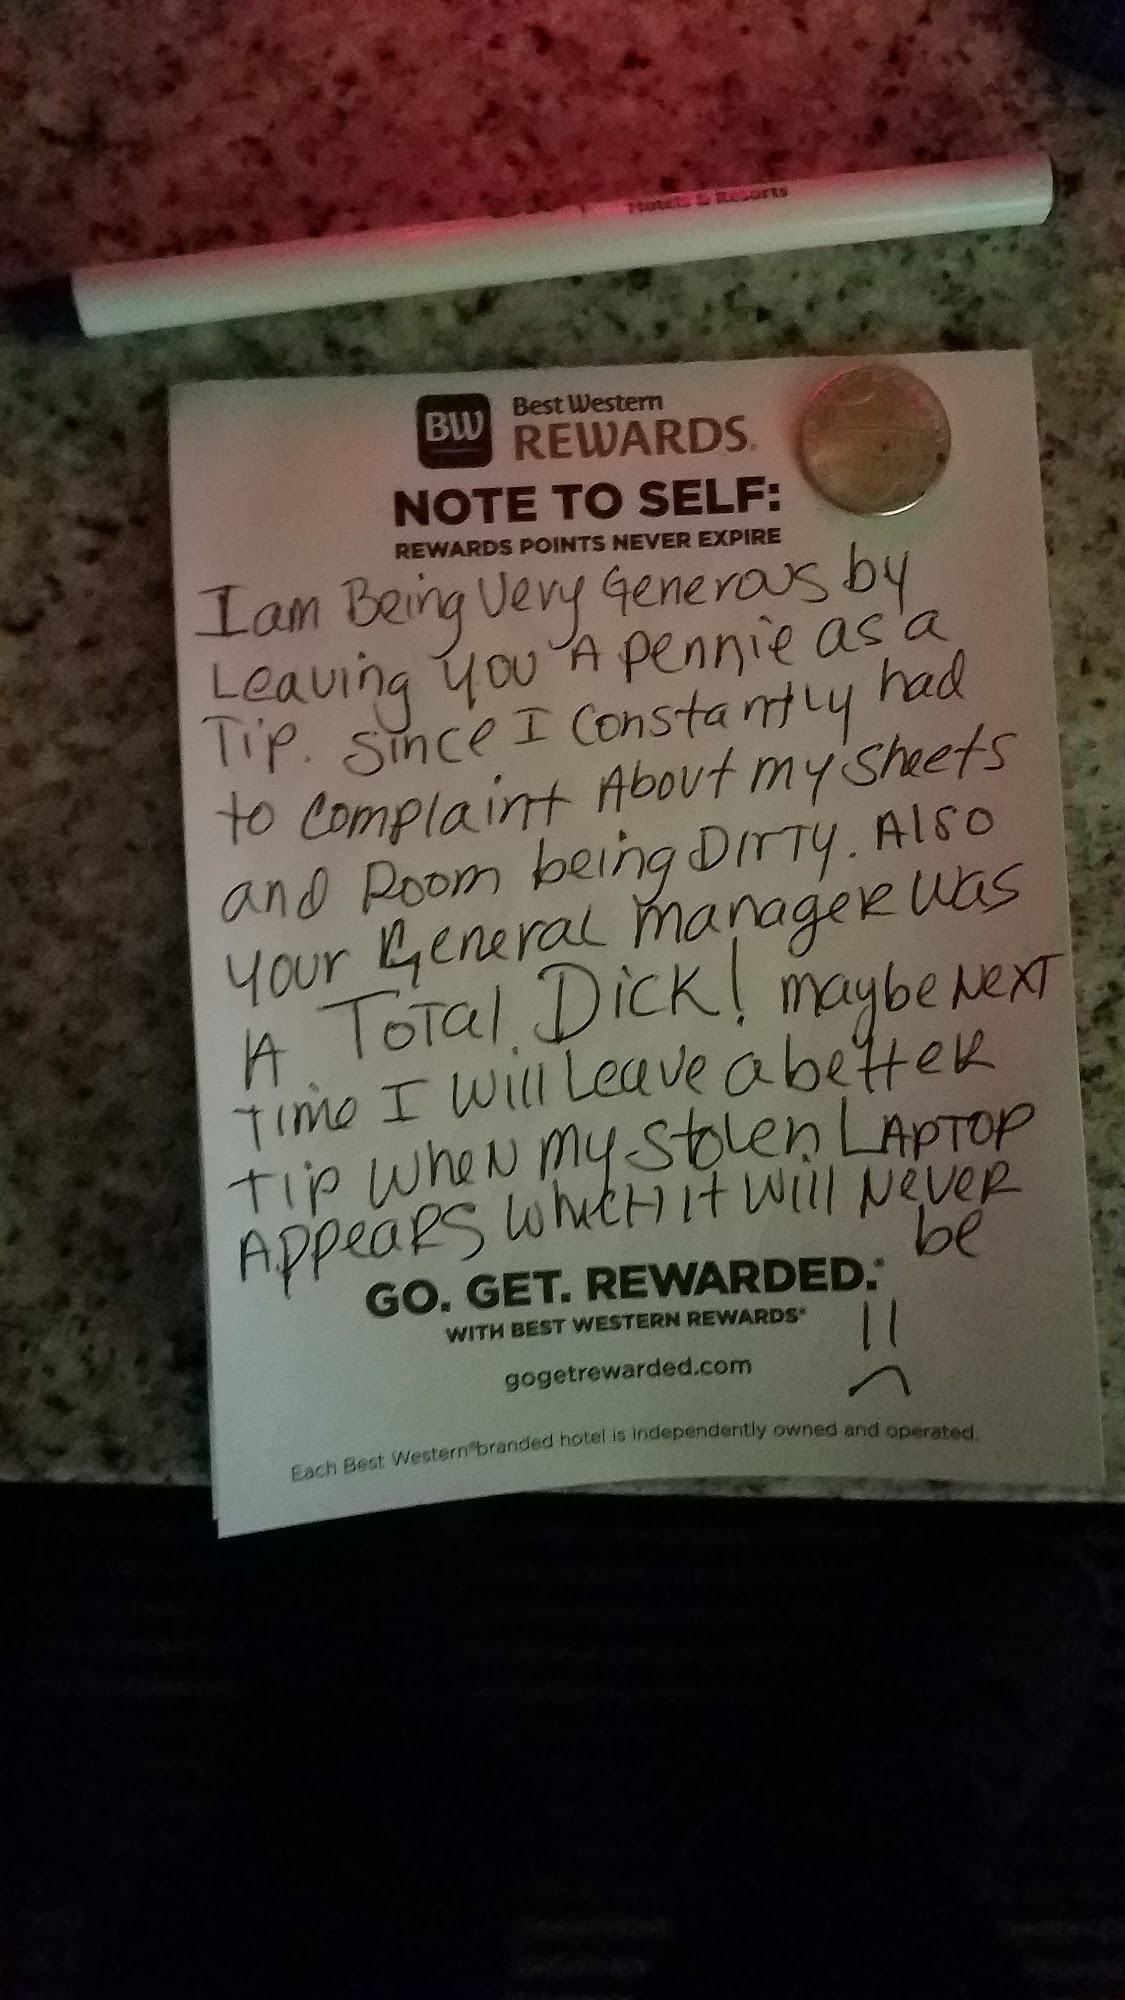 Hotels & Resorts
BW
Best Western
REWARDS®
NOTE TO SELF:
REWARDS POINTS NEVER EXPIRE
I am Being Very Generous by
Leaving you A pennie as a
Tip. since I constantly had
to complaint About my sheets
and Room being DirTy. Also
your General manager was
A Total Dick! maybe Next
time I will Leave a better
tip when my stolen LAPTOP
Appears which it will Never
be
GO. GET. REWARDED.®
WITH BEST WESTERN REWARDS®
gogetrewarded.com
Each Best Western® branded hotel is independently owned and operated.